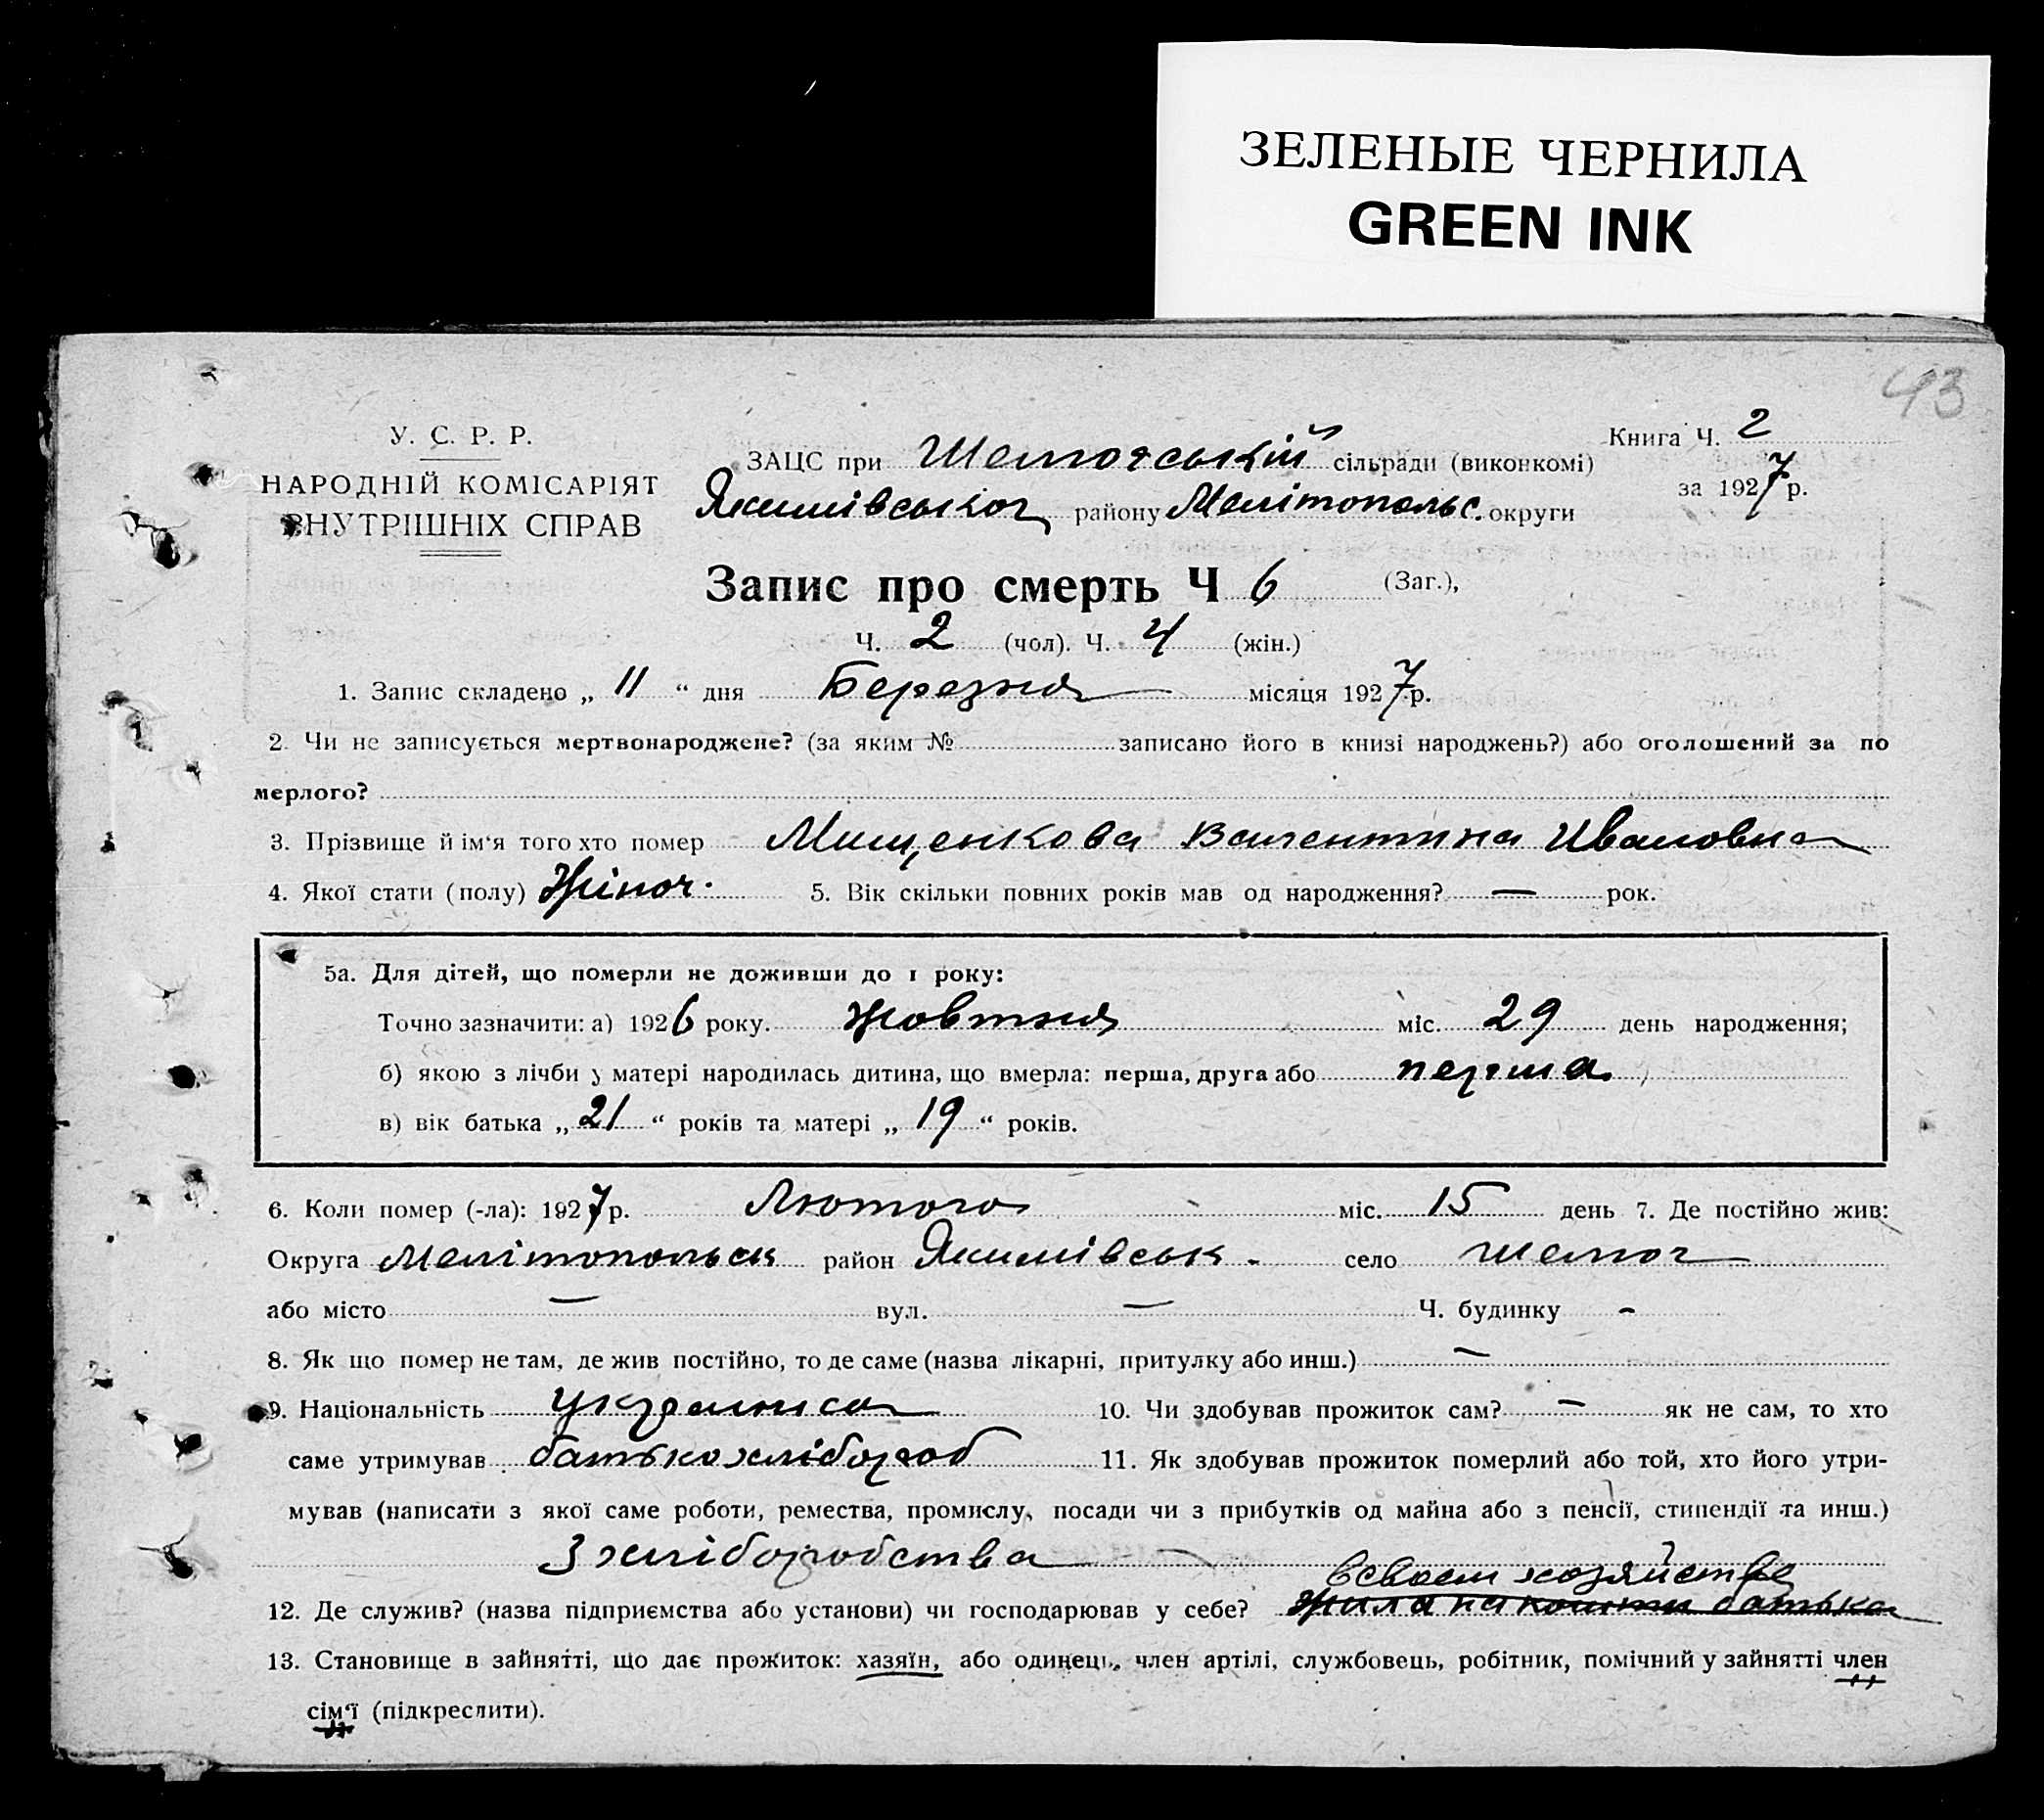 ЗЕЛЕНЫЕ ЧЕРНИЛА
GREEN INK
43
У. С. Р. Р.
НАРОДНІЙ КОМІСАРІЯТ
ВНУТРІШНІХ СПРАВ
ЗАЦС при Шелюгській сільради (виконкомі)
Якимівськог району Мелітопольс. округи
Книга Ч. 2
за 1927 р.
Запис про смерть Ч 6 (Заг.),
Ч. 2 (чол). Ч. 4 (жін.)
1. Запис складено „ 11 “ дня Березня місяця 1927 р.
2. Чи не записується мертвонароджене? (за яким № записано його в книзі народжень?) або оголошений за по
мерлого?
3. Прізвище й ім'я того хто помер Мищенкова Валентина Ивановна
4. Якої стати (полу) Жіноч. 5. Вік скільки повних років мав од народження? — рок.
5а. Для дітей, що померли не доживши до 1 року:
Точно зазначити: а) 1926 року. Жовтня міс. 29 день народження;
б) якою з лічби у матері народилась дитина, що вмерла: перша, друга або перша
в) вік батька „ 21 “ років та матері „ 19 “ років.
6. Коли помер (-ла): 1927 р. Лютого міс. 15 день 7. Де постійно жив:
Округа Мелітопольск район Якимівськ - село
або місто — вул. — Ч. будинку -
8. Як що помер не там, де жив постійно, то де саме (назва лікарні, притулку або инш.) —
9. Національність Українка 10. Чи здобував прожиток сам? — як не сам, то хто
саме утримував батько хлібороб 11. Як здобував прожиток померлий або той, хто його утри-
мував (написати з якої саме роботи, ремества, промислу, посади чи з прибутків од майна або з пенсії, стипендії та инш.)
З хліборобства
в своем хозяйстве
12. Де служив? (назва підприємства або установи) чи господарював у себе? Жила на кошти батька
13. Становище в зайнятті, що дає прожиток: хазяїн, або одинець, член артілі, службовець, робітник, помічний у зайнятті член
сім'ї (підкреслити).